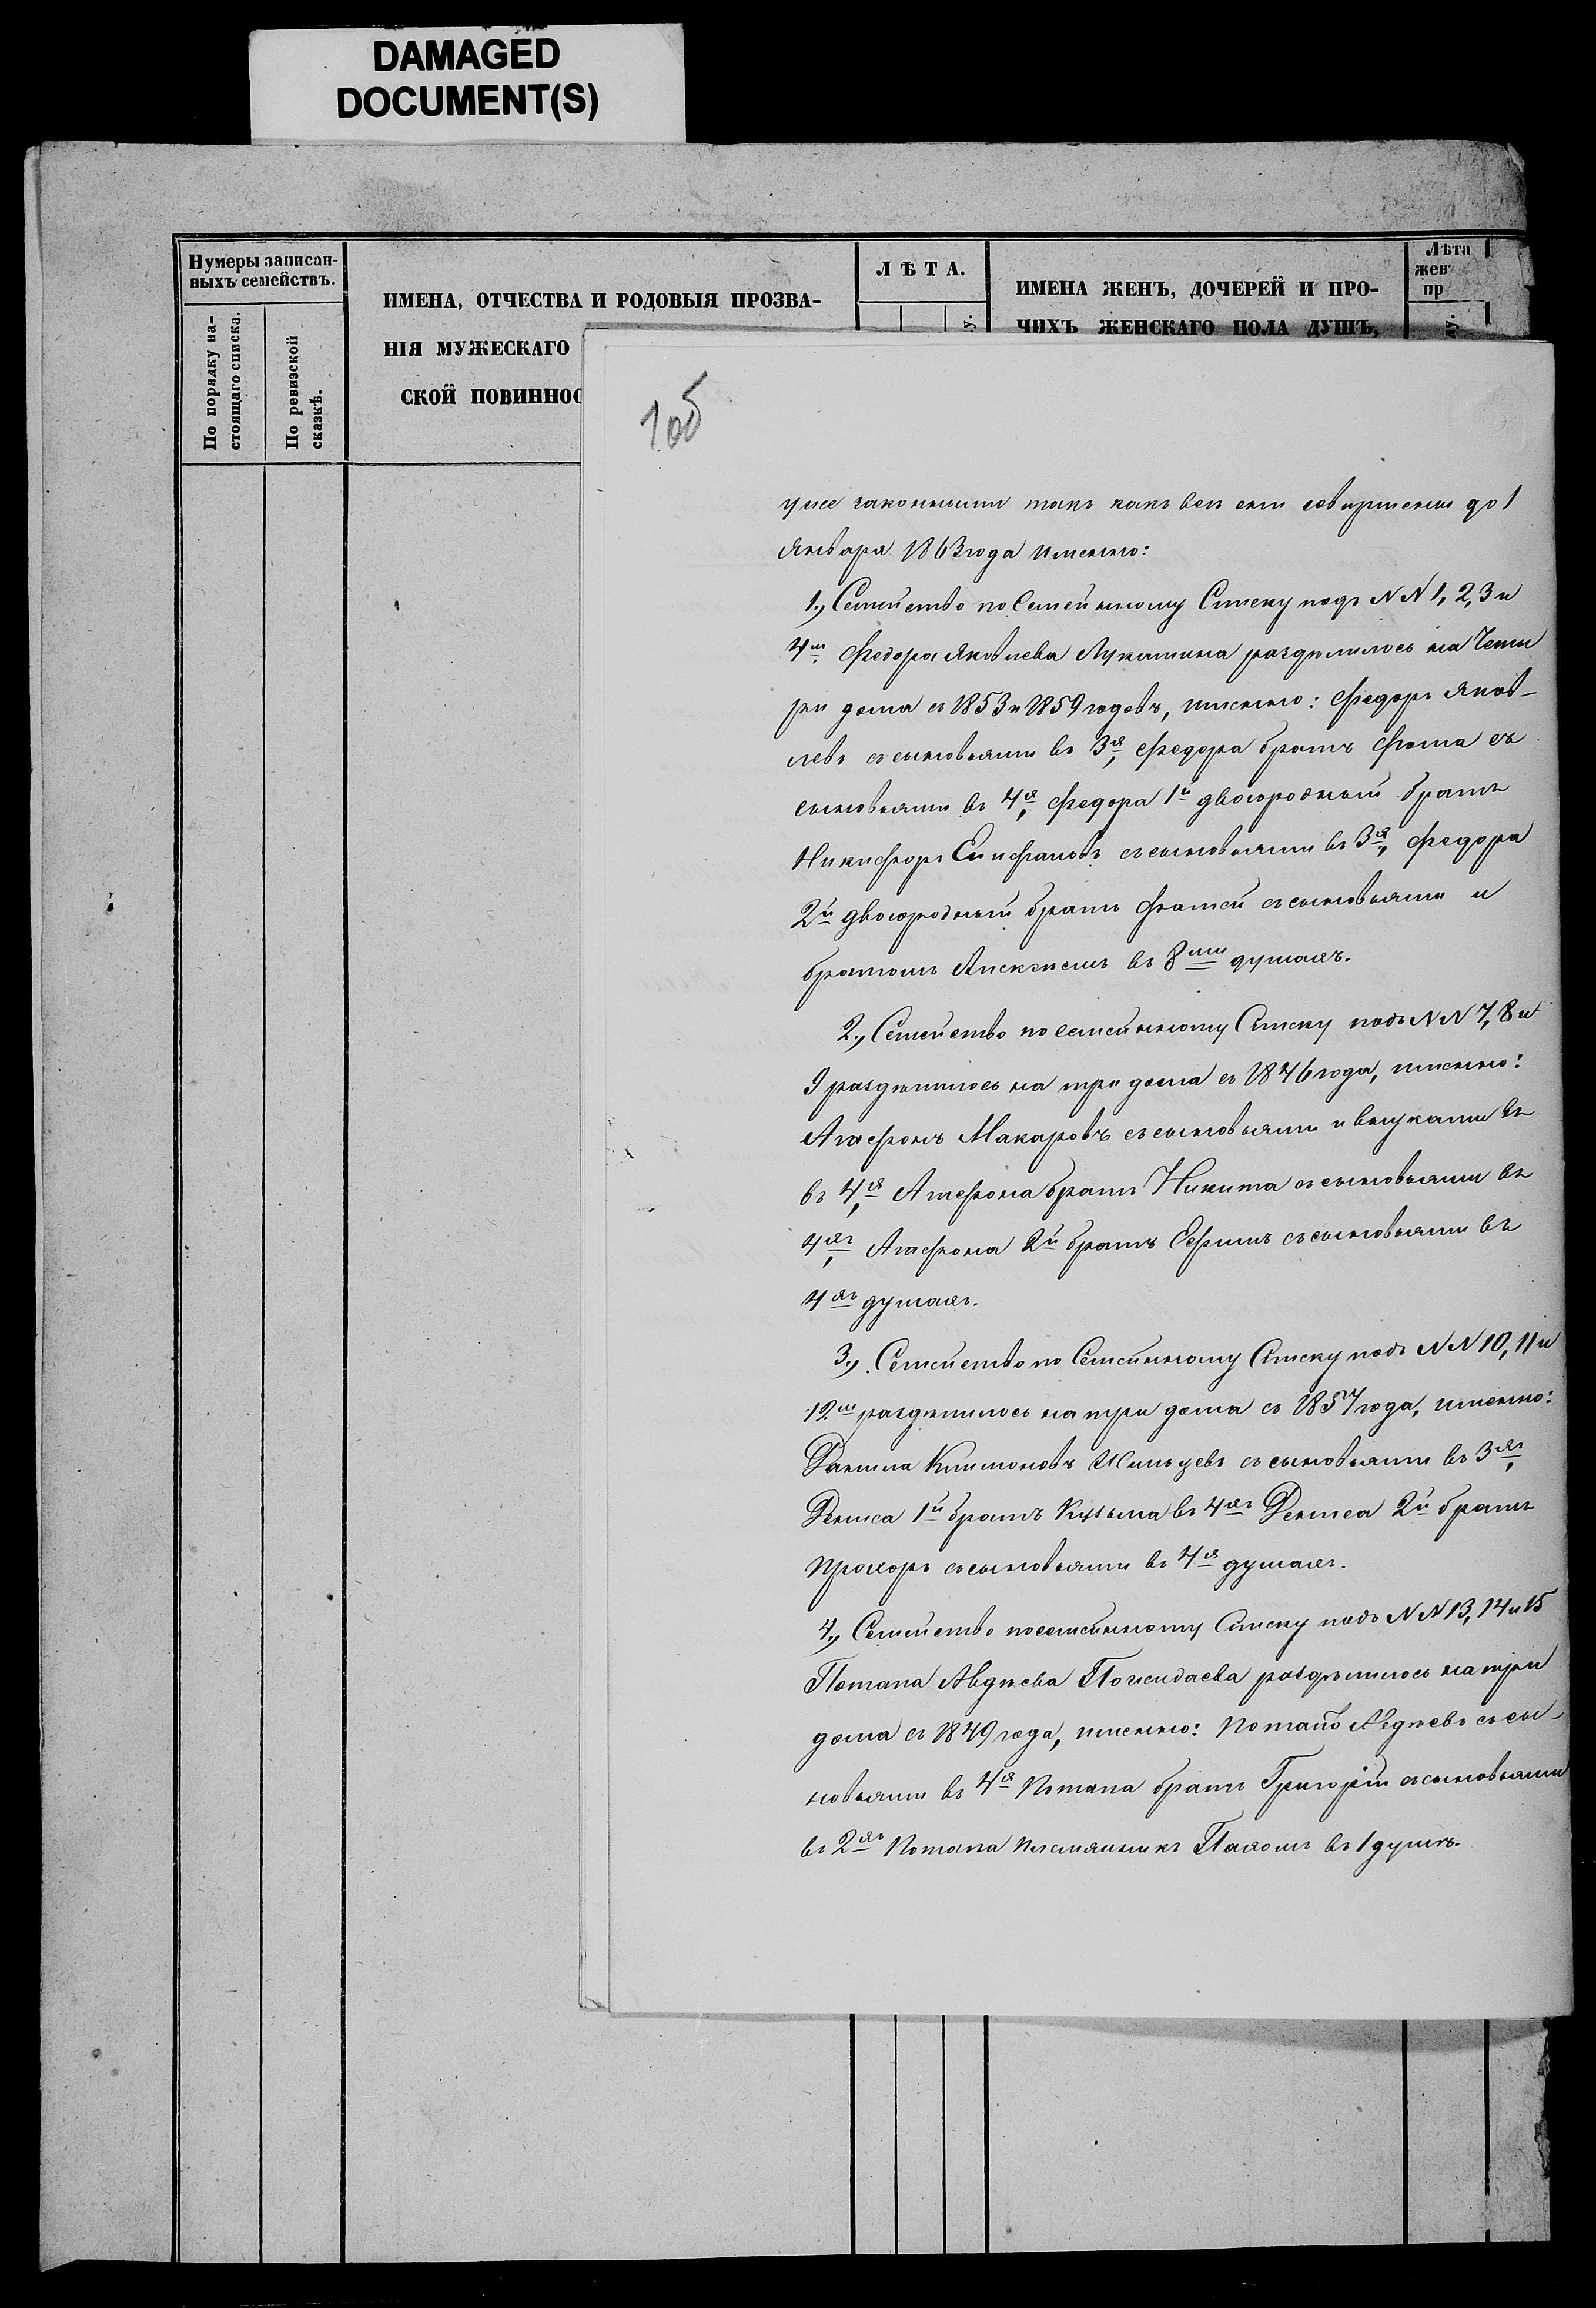 DAMAGED
DOCUMENT(S)
Нумеры записан-
ныхъ семействъ.
По порядку на-
стоящаго списка.
По ревизской
сказкѣ.
ИМЕНА, ОТЧЕСТВА И РОДОВЫЯ ПРОЗВА-
НІЯ МУЖЕСКАГО
СКОЙ ПОВИННОС
ЛѢТА.
ИМЕНА ЖЕНЪ, ДОЧЕРЕЙ И ПРО-
ЧИХЪ ЖЕНСКАГО ПОЛА ДУШЪ,
Лѣта
жен
пр
уже законными такъ какъ всѣ они совершены до 1
Января 1863 года именно:
1., Семейство по Семейному Списку подъ NN 1, 2, 3 и
4м. Федора Яковлева Лукашина раздѣлилось на Четы
ри дома съ 1853 и 1859 годовъ, именно: Федоръ Яков-
левъ съ сыновьями въ 3я, Федора братъ Фома съ
сыновьями въ 4я, Федора 1й двоюродный братъ
Никифоръ Епифановъ съ сыновьями въ 3я, Федора
2й двоюродный братъ Фатей съ сыновьями и
братомъ Алексѣемъ въ 8ми душахъ.
2., Семейство по семейному Списку подъ NN 7, 8 и
9 раздѣлилось на три дома съ 1846 года, именно:
Агафонъ Макаровъ съ сыновьями и внуками въ
въ 4я, Агафона братъ Никита съ сыновьями въ
4хъ, Агафона 2й братъ Ефимъ съ сыновьями въ
4хъ душахъ.
3., Семейство по Семейному Списку подъ NN 10, 11 и
12м раздѣлилось на три дома съ 1857 года, именно:
Данила Климоновъ съ сыновьями въ 3хъ,
Дениса 1й братъ Кузьма въ 4хъ Дениса 2й братъ
Прохоръ съ сыновьями въ 4я душахъ.
4., Семейство по семейному Списку подъ NN 13, 14 и 15
Потапа Авдѣева Пожидаева раздѣлилось на три
дома съ 1849 года, именно: Потапъ Авдѣевъ съ сы-
новьями въ 4я Потапа братъ Григорій съ сыновьями
въ 2хъ Потапа племянникъ Пахомъ въ 1 душѣ.